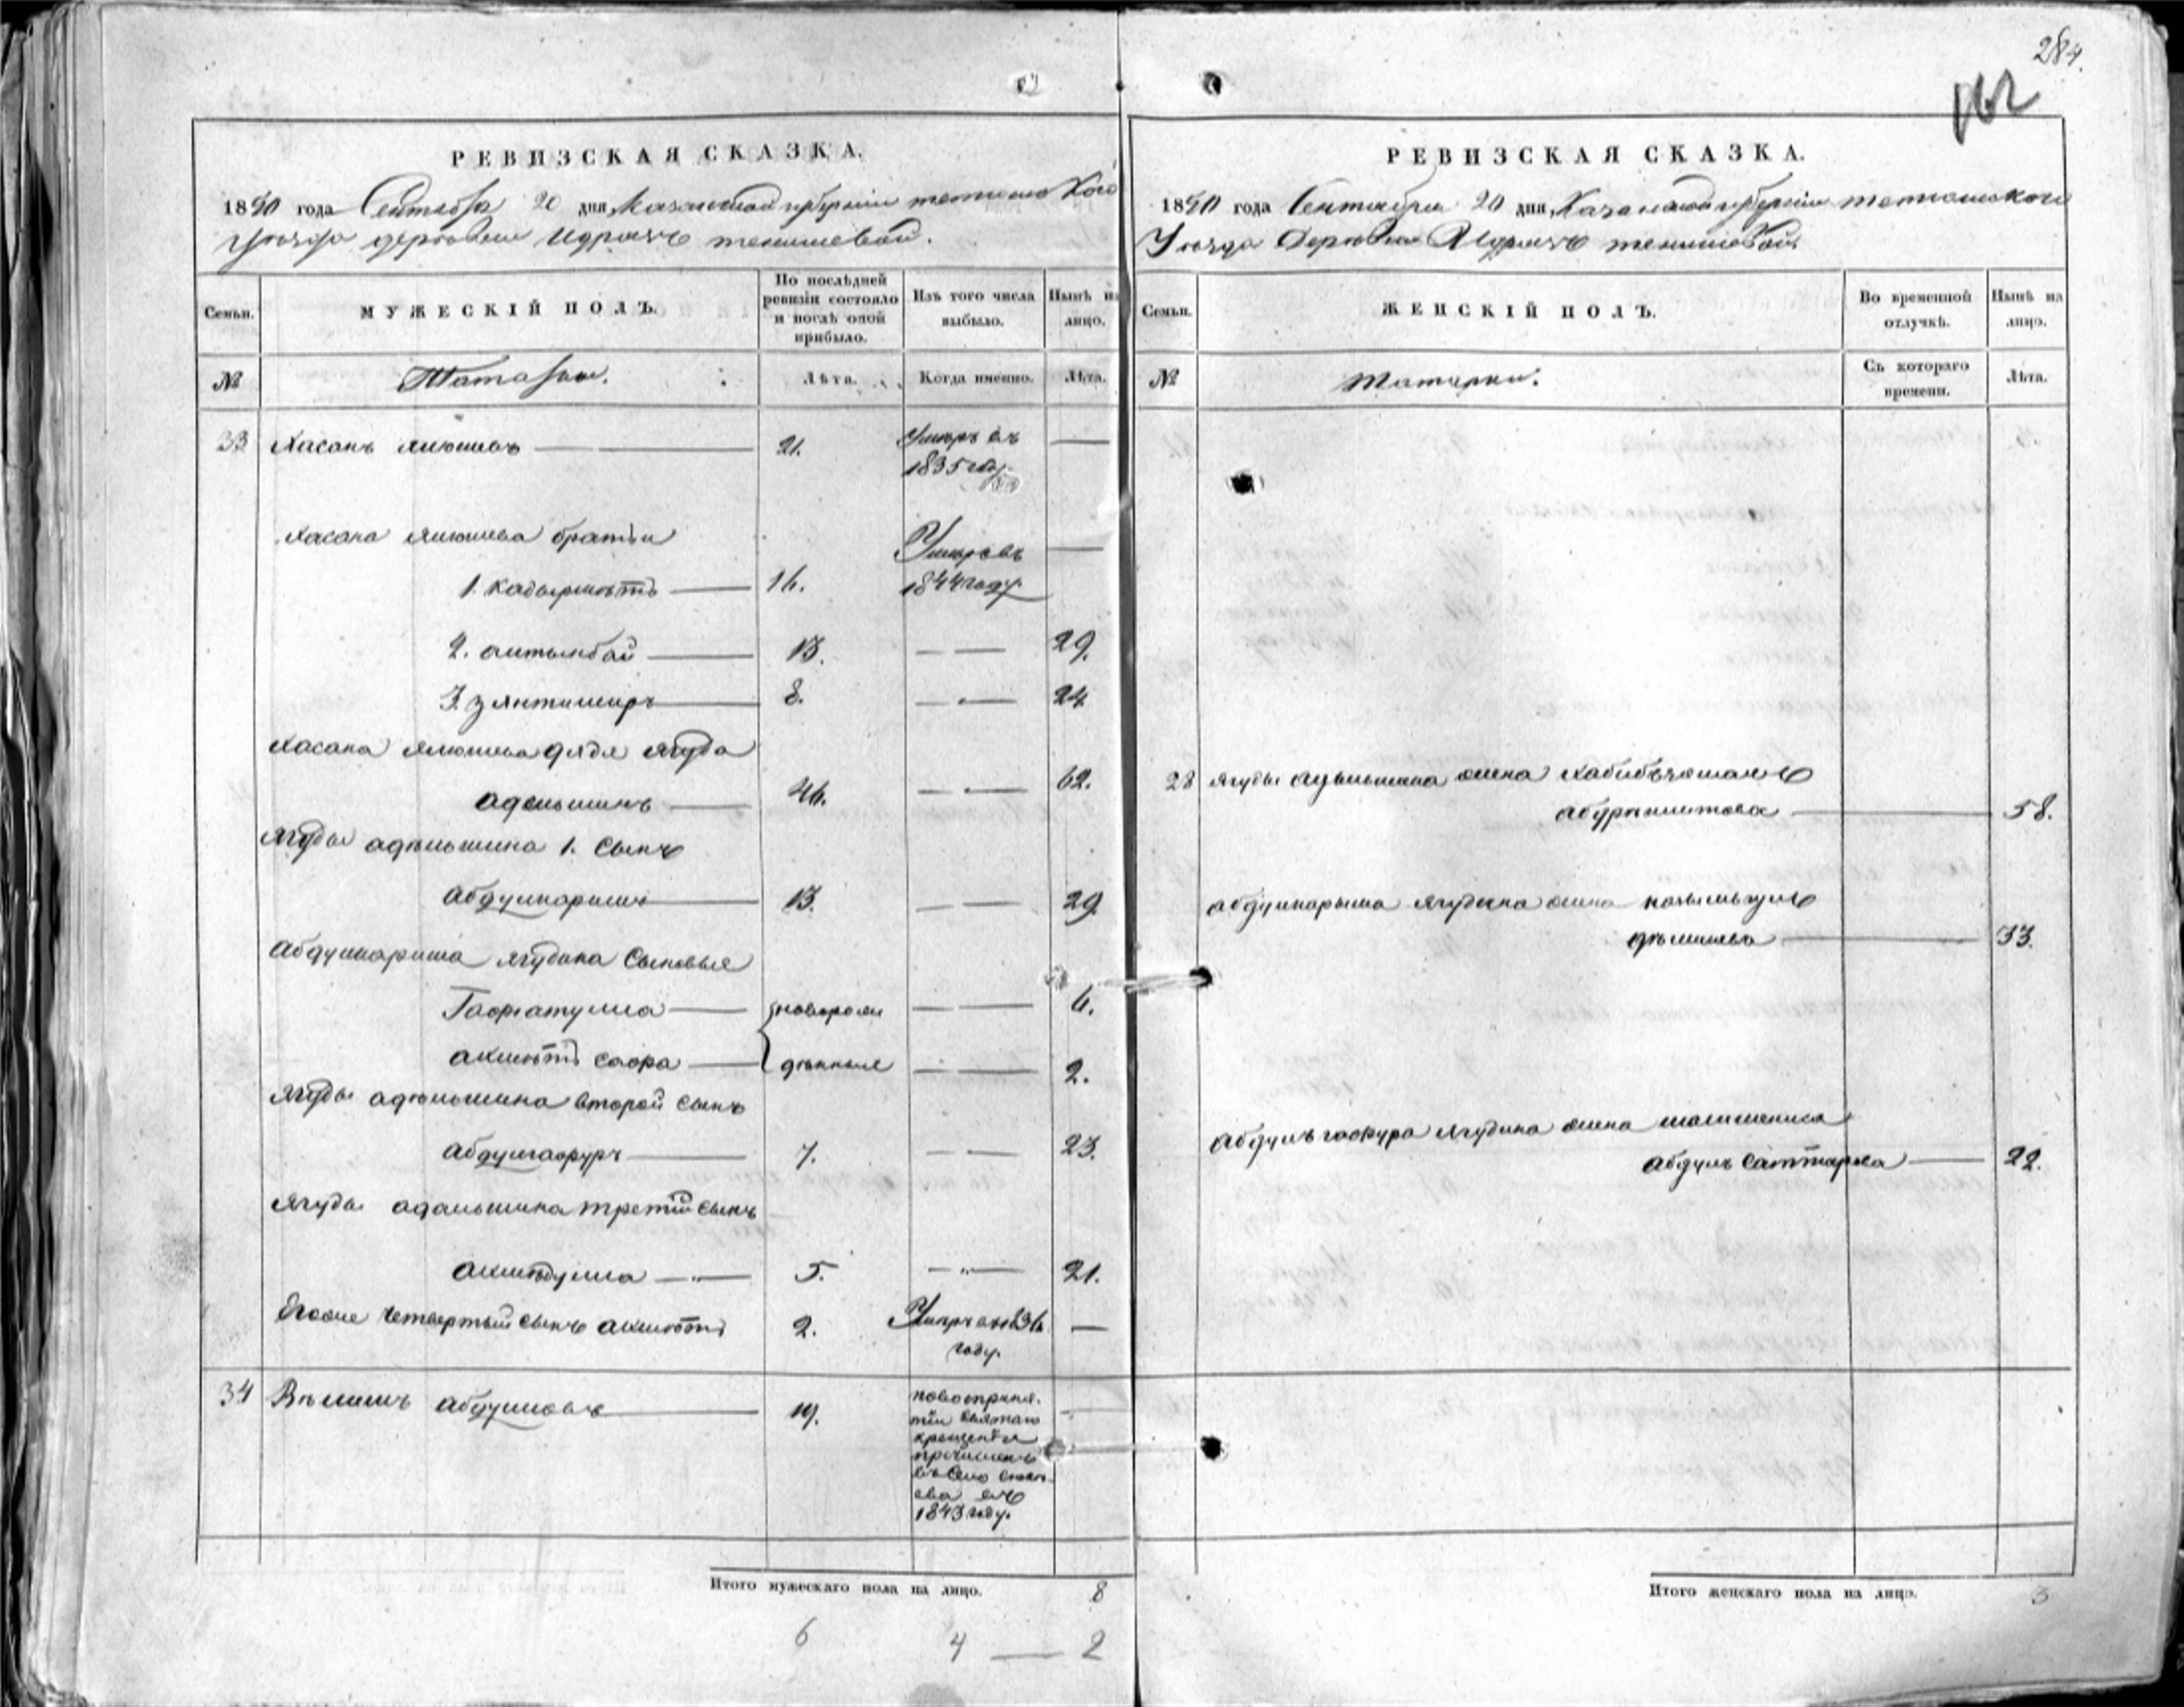 284.
162
РЕВИЗСКАЯ СКАЗКА.
1850 года Сентября 20 дня Казанской губернии тетюшского
Уѣзда деревни Идряс тенишевой.
Семьи.
МУЖЕСКІЙ ПОЛЪ.
По послѣдней ревизіи состояло и послѣ оной прибыло.
Изъ того числа выбыло.
Нынѣ на лицо.
№
Татары.
Лѣта.
Когда именно.
Лѣта.
33 Хасанъ Ялюшевъ 21. Умеръ въ
1835 году
Хасана Ялюшева братья
Умеръ въ
1. Кадырметь 16. 1844 году
2. алтынбай 13. 29.
3. зянтимиръ 8. 24
Хасана Ялюшева дядя Ягуда
адельшинъ 46. 62.
Ягуды адельшина 1. сынъ
Абдулкаримъ 13. 29.
Абдулкарима Ягудина сыновья
Гафиатулла новорож 6.
ахметь сафа денные 2.
Ягуды адельшина второй сынъ
абдулгафуръ 7. 23.
Ягуды адельшина третій сынъ
ахметдулла 5. 21.
Егоже четвертый сынъ ахметь 2. Умеръ въ 1836
году.
34 Вельшъ абдулловъ 19. по воспрія-
тіи святаго
крещенія
причисленъ
въ село
ева въ
1843 году.
Итого мужескаго пола на лицо. 8
6 4 — 2
РЕВИЗСКАЯ СКАЗКА.
1850 года Сентября 20 дня Казанской губерніи тетюшского
Уѣзда Деревни Идряс тенишевой
Семьи.
ЖЕНСКІЙ ПОЛЪ.
Во временной отлучкѣ.
Нынѣ на лицо.
№
Татарки.
Съ котораго времени.
Лѣта.
28 Ягуды адельшина жена хабибъямалъ
абдрешитова 58.
абдулкарима Ягудина жена
33.
абдулъ гафура Ягудина жена
абдулъ Саттарова 22.
Итого женскаго пола на лицо. 3